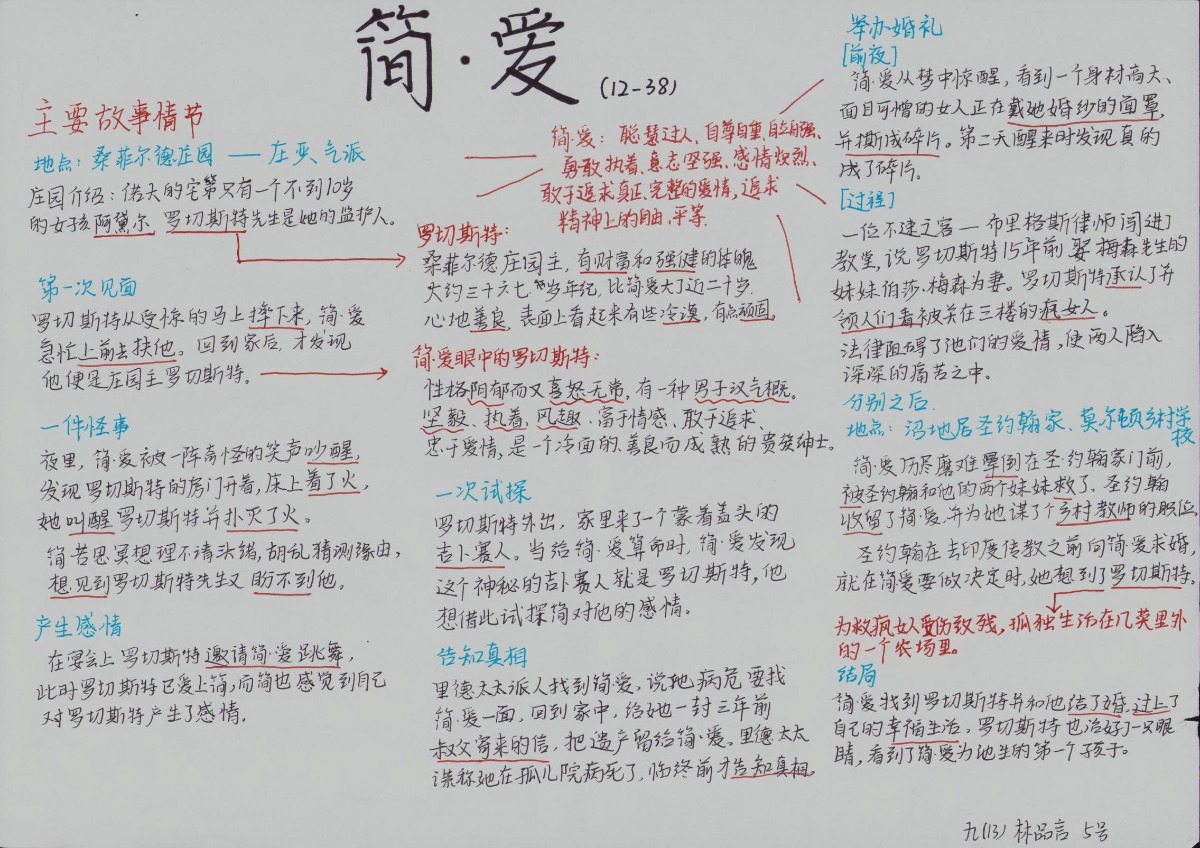 简·爱
(12-38)
主要故事情节
地点：桑菲尔德庄园 —— 庄严、气派
庄园介绍：偌大的宅第只有一个不到10岁
的女孩阿黛尔，罗切斯特先生是她的监护人。
第一次见面
罗切斯特从受惊的马上摔下来，简·爱
急忙上前去扶他。回到家后，才发现
他便是庄园主罗切斯特。
一件怪事
夜里，简·爱被一阵奇怪的笑声吵醒，
发现罗切斯特的房门开着，床上着了火，
她叫醒罗切斯特并扑灭了火。
简苦思冥想理不清头绪，胡乱猜测缘由，
想见到罗切斯特先生又盼不到他。
产生感情
在宴会上罗切斯特邀请简·爱跳舞，
此时罗切斯特已爱上简，而简也感觉到自己
对罗切斯特产生了感情。
简·爱：聪慧过人、自尊自重、自立自强、
勇敢执着、意志坚强、感情炽烈、
敢于追求真正、完整的爱情，追求
精神上的自由、平等.
罗切斯特：
桑菲尔德庄园主，有财富和强健的体魄
大约三十六七岁年纪，比简·爱大了近二十岁.
心地善良，表面上看起来有些冷漠，有点顽固。
简·爱眼中的罗切斯特：
性格阴郁而又喜怒无常，有一种男子汉气概。
坚毅、执着、风趣、富于情感、敢于追求、
忠于爱情，是一个冷面的、善良而成熟的贵族绅士。
一次试探
罗切斯特外出，家里来了一个蒙着盖头的
吉卜赛人。当给简·爱算命时，简·爱发现
这个神秘的吉卜赛人就是罗切斯特，他
想借此试探简对他的感情。
告知真相
里德太太派人找到简·爱，说她病危要找
简·爱一面，回到家中，给她一封三年前
叔父寄来的信，把遗产留给简·爱。里德太太
谎称她在孤儿院病死了，临终前才告知真相。
举办婚礼
[前夜]
简·爱从梦中惊醒，看到一个身材高大、
面目可憎的女人正在戴她婚纱的面罩，
并撕成碎片。第二天醒来时发现真的
成了碎片。
[过程]
一位不速之客—布里格斯律师闯进
教堂，说罗切斯特15年前娶梅森先生的
妹妹伯莎·梅森为妻。罗切斯特承认了并
领人们看被关在三楼的疯女人。
法律阻碍了他们的爱情，使两人陷入
深深的痛苦之中。
分别之后.
地点：沼地居圣约翰家、莫尔顿乡村学
校
简·爱历尽磨难晕倒在圣·约翰家门前，
被圣约翰和他的两个妹妹救了。圣约翰
收留了简·爱，并为她谋了个乡村教师的职位
圣约翰在去印度传教之前向简·爱求婚，
就在简爱要做决定时，她想到了罗切斯特。
为救疯女人受伤致残，孤独生活在几英里外
的一个农场里。
结局
简·爱找到罗切斯特并和他结了婚。过上了
自己的幸福生活。罗切斯特也治好了一只眼
睛，看到了简·爱为他生的第一个孩子。
九(13) 林品言 5号